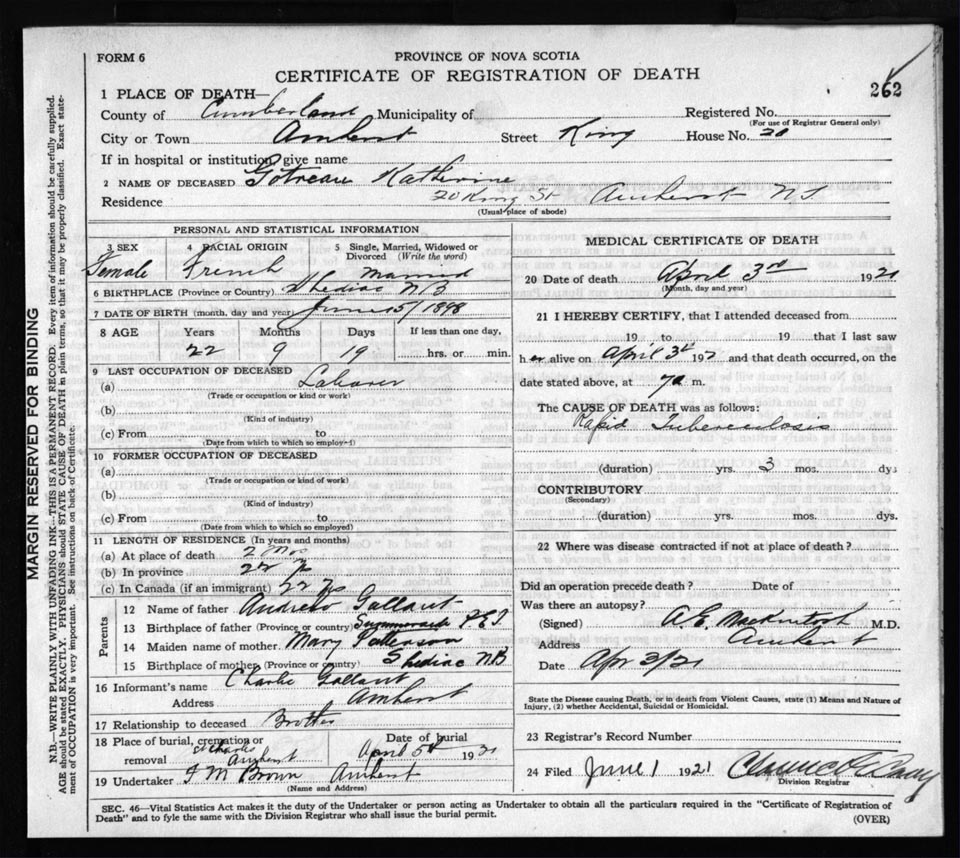 FORM 6
PROVINCE OF NOVA SCOTIA
CERTIFICATE OF REGISTRATION OF DEATH
262
1 PLACE OF DEATH—
County of Cumberland Municipality of Registered No.
(For use of Registrar General only)
City or Town Amherst Street King House No. 20
If in hospital or institution give name
2 NAME OF DECEASED Gotreau Katherine
Residence 20 King St Amherst N.S.
(Usual place of abode)
PERSONAL AND STATISTICAL INFORMATION
3 SEX 4 RACIAL ORIGIN 5 Single, Married, Widowed or Divorced (Write the word)
Female French Married
6 BIRTHPLACE (Province or Country) Shediac N B
7 DATE OF BIRTH (month, day and year) June 15/1898
8 AGE Years Months Days If less than one day,
22 9 19 hrs. or min.
9 LAST OCCUPATION OF DECEASED
(a) Laborer
(Trade or occupation or kind or work)
(b)
(Kind of industry)
(c) From to
(Date from which to which so employed)
10 FORMER OCCUPATION OF DECEASED
(a)
(Trade or occupation or kind of work)
(b)
(Kind of industry)
(c) From to
(Date from which to which so employed)
11 LENGTH OF RESIDENCE (In years and months)
(a) At place of death 2 Mos
(b) In province 22 Ys
(c) In Canada (if an immigrant) 22 Ys
Parents
12 Name of father Andrew Gallant
13 Birthplace of father (Province or country) Summerside P.E.I
14 Maiden name of mother Mary Patterson
15 Birthplace of mother (Province or country) Shediac N.B
16 Informant's name Charlie Gallant
Address Amherst
17 Relationship to deceased Brother
18 Place of burial, cremation or removal St Charles Amherst
Date of burial April 5th 1921
19 Undertaker F M Brown Amherst
(Name and Address)
MEDICAL CERTIFICATE OF DEATH
20 Date of death April 3rd 1921
(Month, day and year)
21 I HEREBY CERTIFY, that I attended deceased from
19 to 19 that I last saw
her alive on April 3rd 192 and that death occurred, on the
date stated above, at 7a m.
The CAUSE OF DEATH was as follows:
Rapid Tuberculosis
(duration) yrs. 3 mos. dys
CONTRIBUTORY
(Secondary)
(duration) yrs. mos. dys.
22 Where was disease contracted if not at place of death?
Did an operation precede death? Date of
Was there an autopsy?
(Signed) A.E. Mackintosh M.D.
Address Amherst
Date Apr 3/21
State the Disease causing Death, or in death from Violent Causes, state (1) Means and Nature of
Injury, (2) whether Accidental, Suicidal or Homicidal.
23 Registrar's Record Number
24 Filed June 1 1921
Division Registrar
SEC. 46—Vital Statistics Act makes it the duty of the Undertaker or person acting as Undertaker to obtain all the particulars required in the "Certificate of Registration of
Death" and to fyle the same with the Division Registrar who shall issue the burial permit.
(OVER)
MARGIN RESERVED FOR BINDING
N.B.—WRITE PLAINLY WITH UNFADING INK—THIS IS A PERMANENT RECORD. Every item of information should be carefully supplied.
AGE should be stated EXACTLY. PHYSICIANS should STATE CAUSE OF DEATH in plain terms, so that it may be properly classified. Exact statement of OCCUPATION is very important. See instructions on back of Certificate.